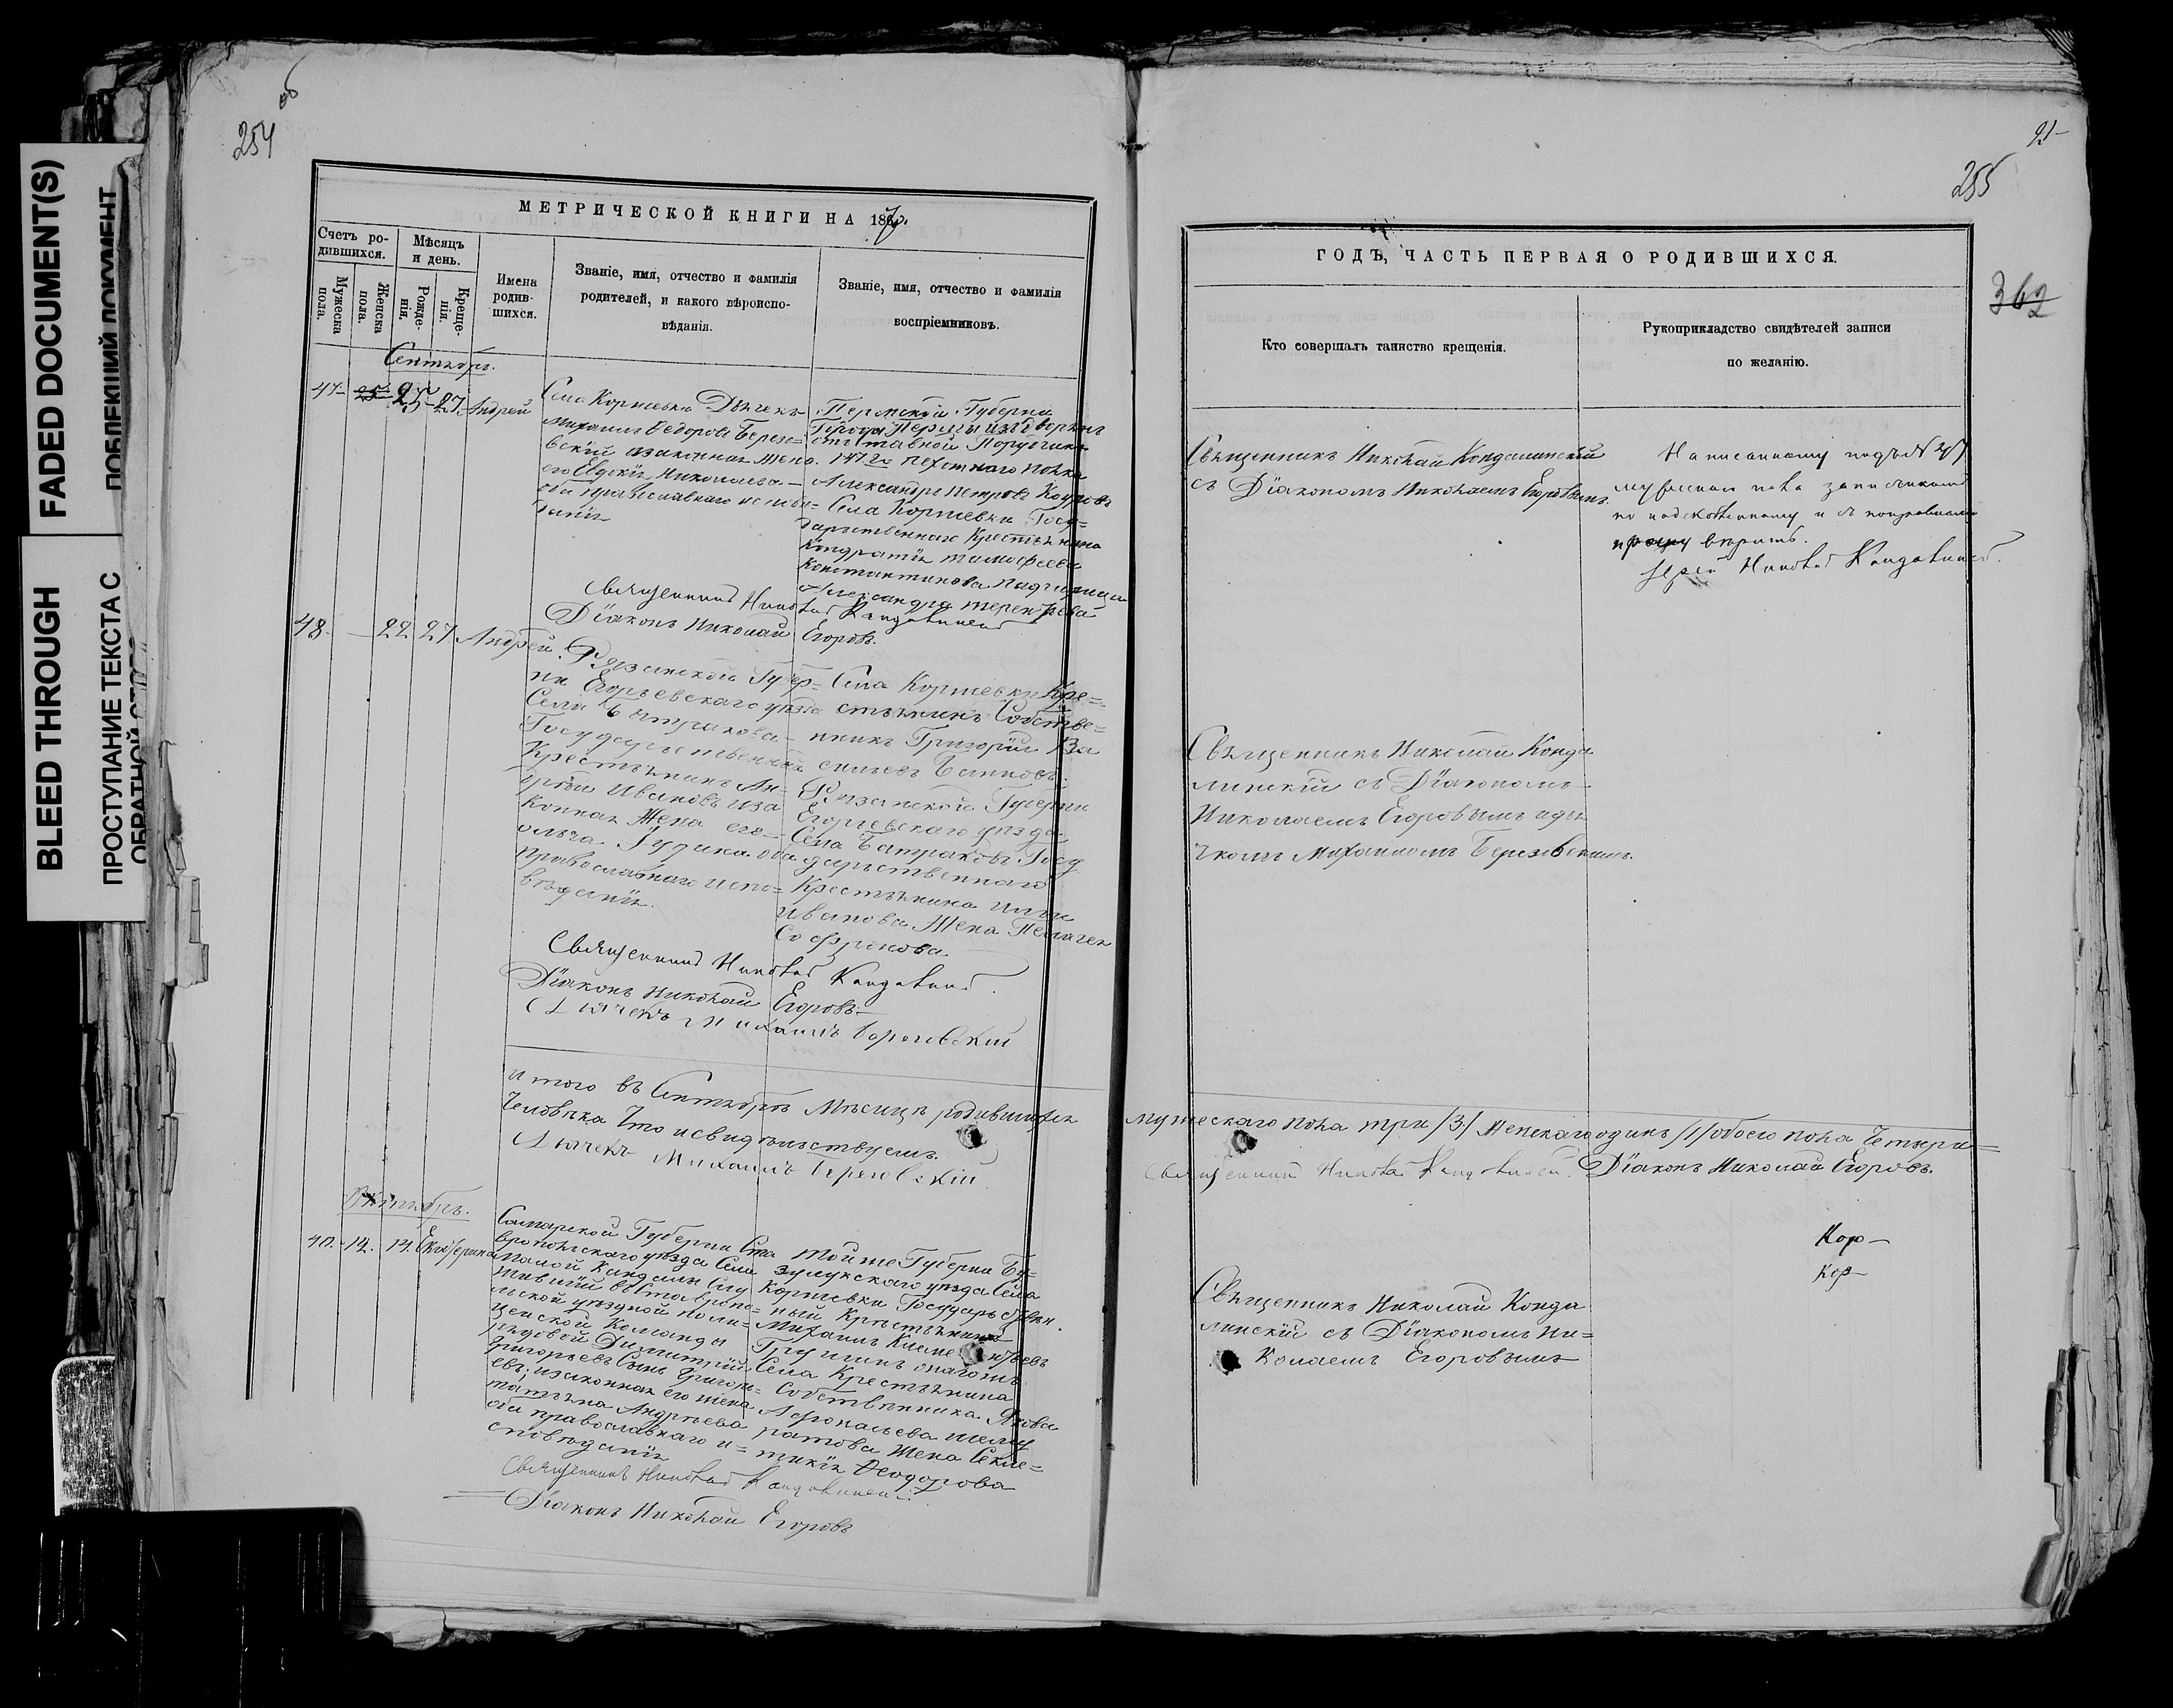 FADED DOCUMENT(S)
BLEED THROUGH
ПРОСТУПАНИЕ ТЕКСТА С
254
об
МЕТРИЧЕСКОЙ КНИГИ НА 187
Счетъ ро-
дившихся.
Мужеска
пола.
Женска
пола.
Мѣсяцъ
и день.
Рожде-
нія.
Креще-
нія.
Имена
родив-
шихся.
Званіе, имя, отчество и фамилія
родителей, и какого вѣроиспо-
вѣданія.
Званіе, имя, отчество и фамилія
воспріемниковъ.
Сентябрь.
47 25 25 27 Андрей
Села Корнеевки Дьячекъ
Михаилъ Ѳедоровъ Берез-
вскій изаконная жена
его Евдокія Николаева
оба православнаго испове-
данія
Пермской Губерніи
Города Перми изъ Дворянъ
отставной Поручикъ
пехотнаго полка
Александръ Петровъ
Села Корнеевки Госу-
дарственнаго Крестьянина
Кондратія Тимофеева
Константинова падчерица
Александра Терентьева
Священникъ Николай Кондалинскій
Діаконъ Николай Егоровъ.
48 — 22 27 Андрей
Рязанской Губер-
ніи Егорьевскаго уѣзда
Села Батракова
Государственный
Крестьянинъ Ан-
дрей Ивановъ иза
конная Жена его
Ольга оба
православнаго испо-
вѣданія.
Села Корнеевки Кре-
стьянинъ Собстве-
нникъ Григорій Ва
сильевъ Баиновъ.
Рязанской Губерніи
Егорьевскаго уѣзда
Села Батраковъ Госу
дарственнаго
Крестьянина Ильи
Иванова Жена Пелагея
Софронова.
Священникъ Николай Кондалинскій.
Діаконъ Николай Егоровъ
Дьячекъ Михаилъ Березовскій
итого въ Сентябрѣ Мѣсяцѣ родившихся
Человѣка Что и свидѣтельствуемъ.
Дьячекъ Михаилъ Березовскій
Октябрь.
40 14. 14. Екатерина
Самарской Губерніи Ста
вропольскаго уѣзда Села
Малой Кандалы Слу
жившій въ Ставропо-
льской уѣздной поли-
цейской Команды
рядовой Димитрій
Григорьевъ Сынъ Григорь-
евъ изаконная его жена
Татьяна Андреева
оба православнаго и-
споведанія
Той же Губерніи Бу-
зулукскаго уѣзда Села
Корнеевки Государствен
ный Крестьянинъ
Михаилъ Клементьевъ
онаго же
Села Крестьянина
Собственника Якова
Афонасьева
Жена Секле-
тикія Ѳеодорова
Священникъ Николай Кондалинскій
Діаконъ Николай Егоровъ
21
255
362
ГОДЪ, ЧАСТЬ ПЕРВАЯ О РОДИВШИХСЯ.
Кто совершалъ таинство крещенія.
Рукоприкладство свидѣтелей записи
по желанію.
Священникъ Николай Кондалинскій
съ Діакономъ Николаемъ Егоровымъ.
Написанному подъ № 47
мужескаго пола
по подскобленному и
прошу вѣрить.
Іерей Николай Кондалинскій.
Священникъ Николай Конда
линскій съ Діакономъ
Николаемъ Егоровымъ идья
чкомъ Михаиломъ Березовскимъ.
мужескаго пола три /3/ Женскаго одинъ /1/ обоего пола Четыри
Священникъ Николай Кондалинскій. Діаконъ Николай Егоровъ.
Кор-
Кор-
Священникъ Николай Конда
линскій съ Діакономъ Ни-
колаемъ Егоровымъ